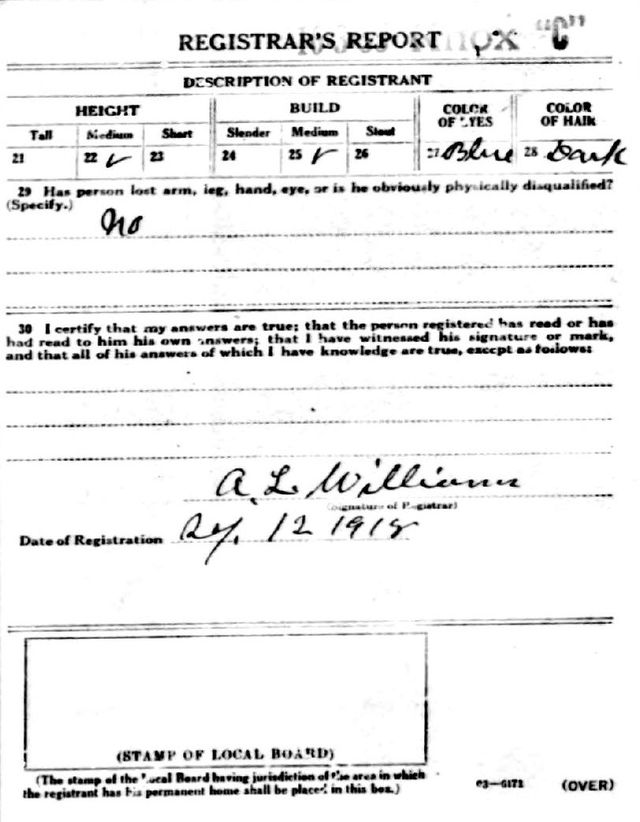 REGISTRAR'S REPORT "C"
DESCRIPTION OF REGISTRANT
HEIGHT BUILD COLOR OF EYES COLOR OF HAIR
Tall Medium Short Slender Medium Stout
21 22 ✓ 23 24 25 ✓ 26 27 Blue 28 Dark
29 Has person lost arm, leg, hand, eye, or is he obviously physically disqualified?
(Specify.)
No
30 I certify that my answers are true; that the person registered has read or has
had read to him his own answers; that I have witnessed his signature or mark,
and that all of his answers of which I have knowledge are true, except as follows:
A. L. Williams
(Signature of Registrar)
Date of Registration 12 1918
(STAMP OF LOCAL BOARD)
(The stamp of the Local Board having jurisdiction of the area in which
the registrant has his permanent home shall be placed in this box.)
03—6171 (OVER)